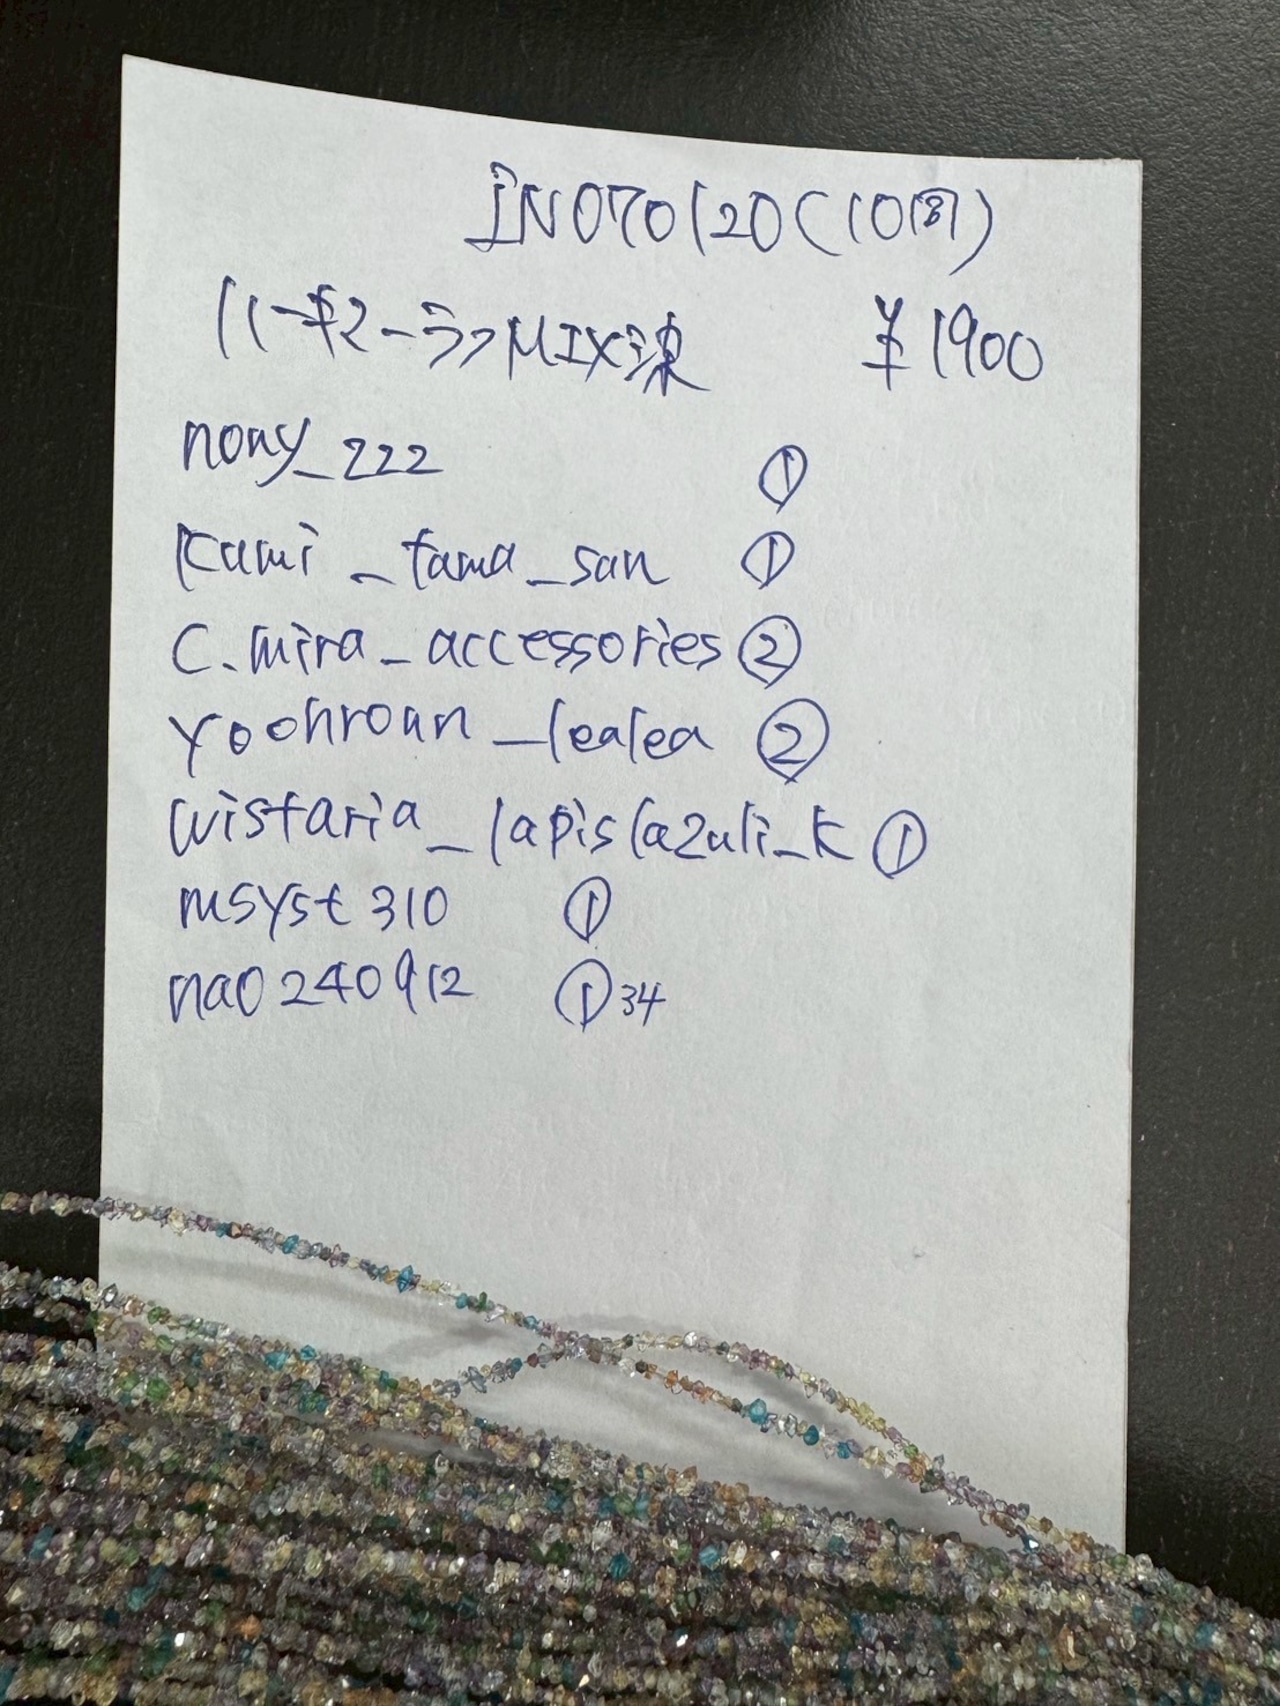 IN070120(10周)
ハーキマーラフMIX漆 ¥1900
nony_222 ①
Kami_tama_san ①
C.mira_accessories ②
yoohroun_lealea ②
wistaria_lapislazuli_k ①
msyst310 ①
nao240912 ① 34